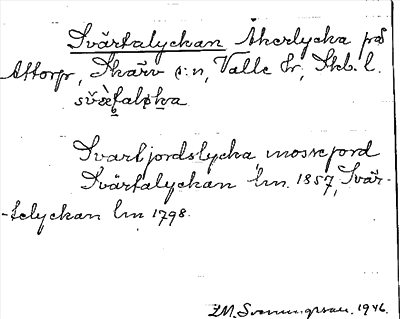 Svärtalyckan Åkerlycka på
Attorp, Skärv s:n, Valle hr, Skb. l.
Svartjordslycka, mossejord
Svärtalyckan lm. 1857, Svär-
-telyckan lm 1798.
1946.